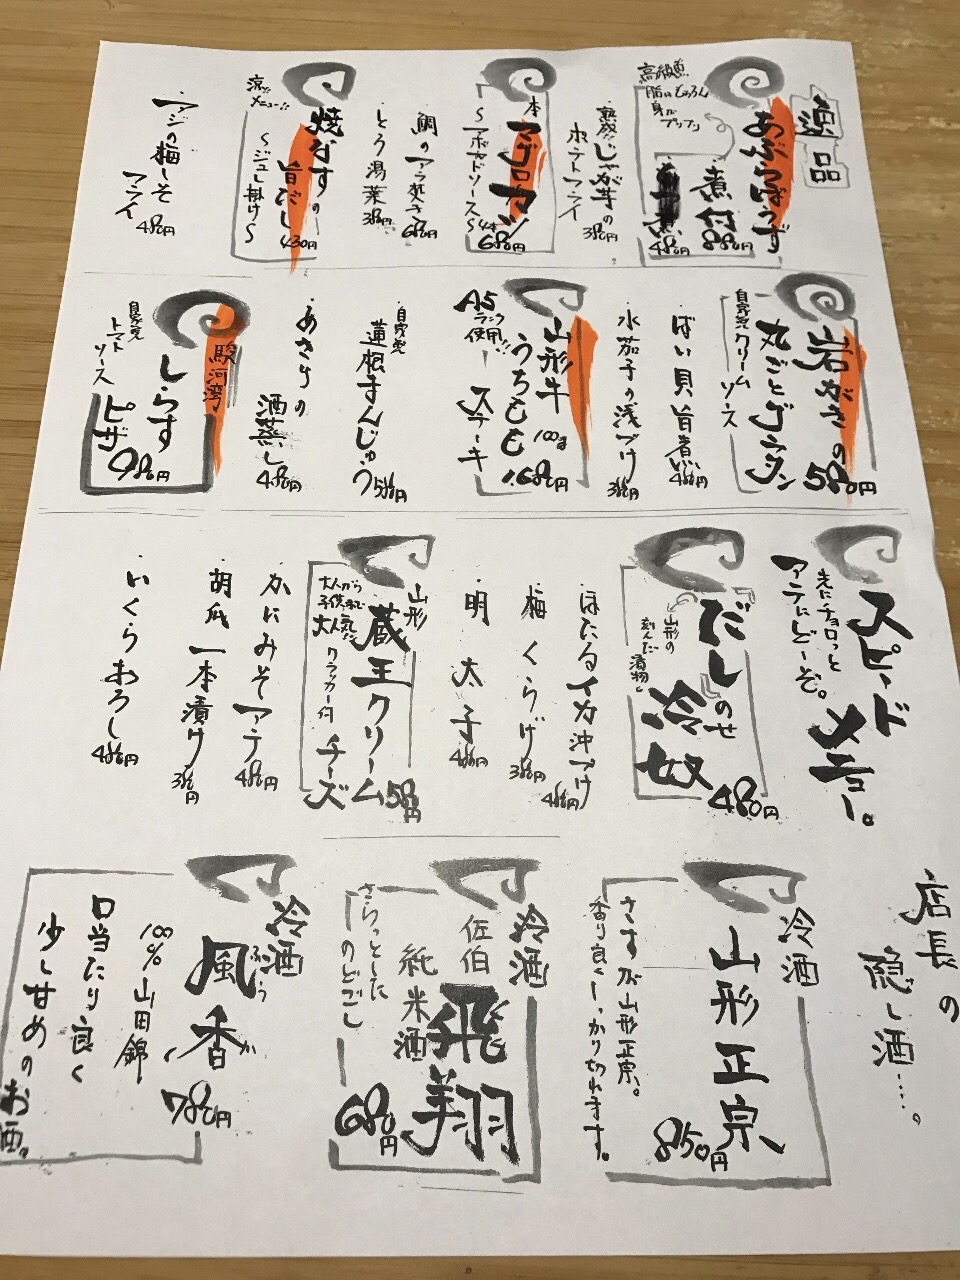 逸品
あぶらぼうず
煮付 880円
480円
高級魚!!
脂はもちろん
身がプリプリ
熟成じゃが芋の
ポテトフライ 380円
本マグロカマ
〜アボカドソース〜 680円
鯛のアラ炊き 680円
とろ湯葉 380円
焼なすの
旨だし 430円
〜ジュレ掛け〜
涼!!
メニュー!!
アジの梅しそ
フライ 480円
岩がきの
丸ごとグラタン 580円
自家製クリーム
ソース
ばい貝旨煮 480円
水茄子の浅づけ 380円
山形牛
うちもも 100g
ステーキ 1,680円
A5
ランク
使用!!
自家製
蓮根まんじゅう 580円
あさりの
酒蒸し 480円
駿河湾
しらす
ピザ 980円
自家製
トマト
ソース
スピードメニュー。
先にチョロっと
アテにどーぞ。
だしのせ
冷奴 480円
山形の
刻んだ
漬物
ほたるイカ沖づけ 480円
梅くらげ 380円
明太子 480円
山形
蔵王クリーム
チーズ 580円
大人から
子供まで
大人気だ
クラッカー付
かにみそアテ 480円
胡瓜一本漬け 380円
いくらおろし 480円
店長の
隠し酒…。
冷酒
山形正宗 850円
さすが山形正宗。
香り良くしっかり切れます。
冷酒
佐伯
飛翔
純米酒
680円
さらっとした
のどごし
冷酒
風香
ふうか
780円
100%山田錦
口当たり良く
少し甘めのお酒。